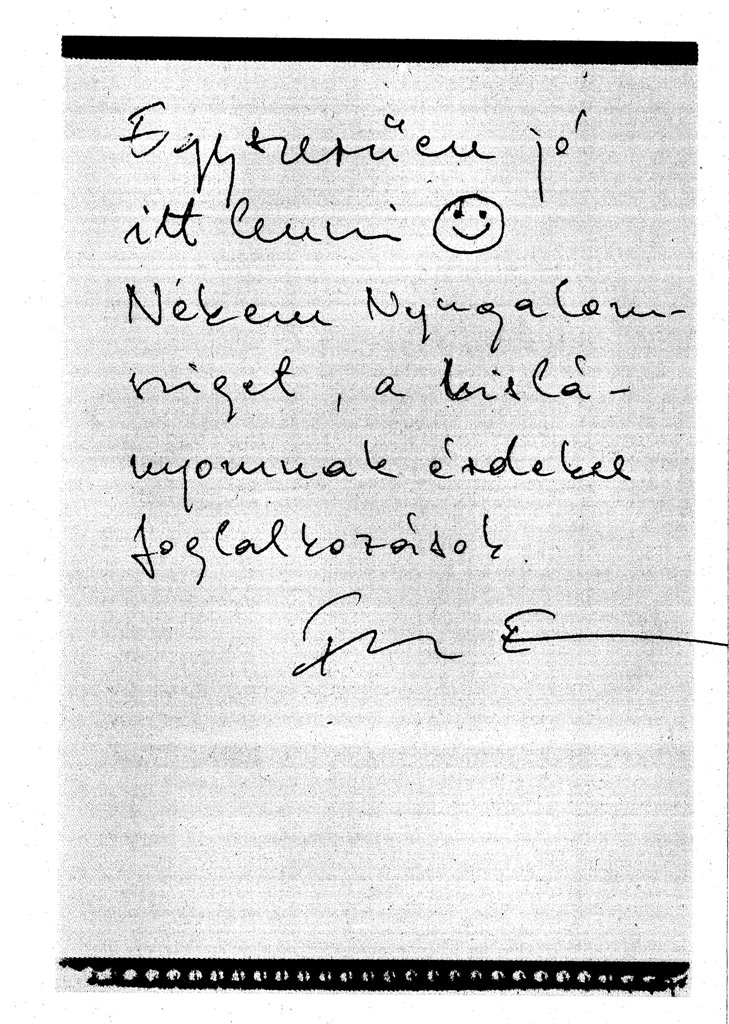 Egyszerűen jó
itt lenni
Nekem Nyugalom-
sziget, a kislá-
nyomnak érdekes
foglalkozások